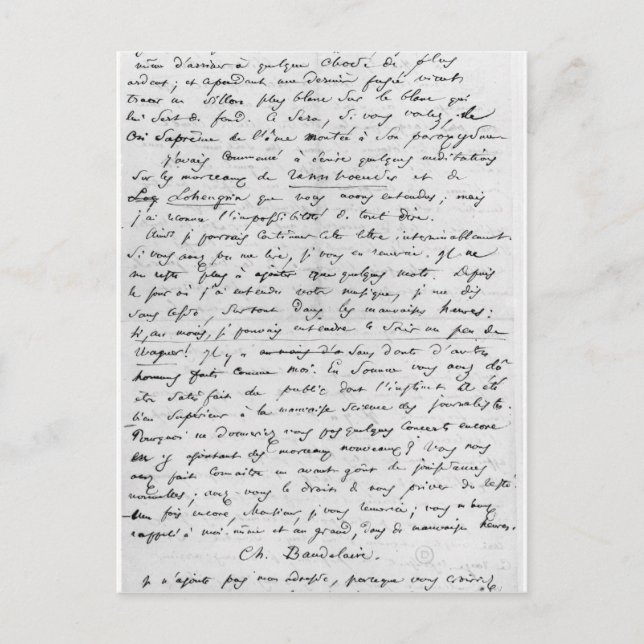 même d'arriver à quelque chose de plus
ardent; et cependant une dernière fusée vient
tracer un sillon plus blanc sur le blanc qui
lui sert de fond. Ce sera, si vous voulez, le
cri suprême de l'âme montée à son paroxysme.
J'avais commencé à écrire quelques méditations
sur les morceaux de Tannhoeuser et de
Log Lohengrin que nous avons entendus; mais
j'ai reconnu l'impossibilité de tout dire.
Ainsi je pourrais continuer cette lettre interminablement.
Si vous avez pu me lire, je vous en remercie. Il ne
me reste plus à ajouter que quelques mots. Depuis
le jour où j'ai entendu votre musique, je me dis
sans cesse, surtout dans les mauvaises heures:
Si, au moins, je pouvais entendre ce soir un peu de
Wagner! Il y a sans doute d'autres
hommes faits comme moi. En somme vous avez dû
être satisfait du public dont l'instinct a été
bien supérieur à la mauvaise science des journalistes.
Pourquoi ne donneriez vous pas quelques concerts encore
en y ajoutant des morceaux nouveaux? Vous nous
avez fait connaître un avant-goût de jouissances
nouvelles; avez-vous le droit de nous priver du reste?
Une fois encore, Monsieur, je vous remercie; vous m'avez
rappelé à moi-même et au grand, dans de mauvaises heures.
Ch. Baudelaire.
Je n'ajoute pas mon adresse, parceque vous croiriez